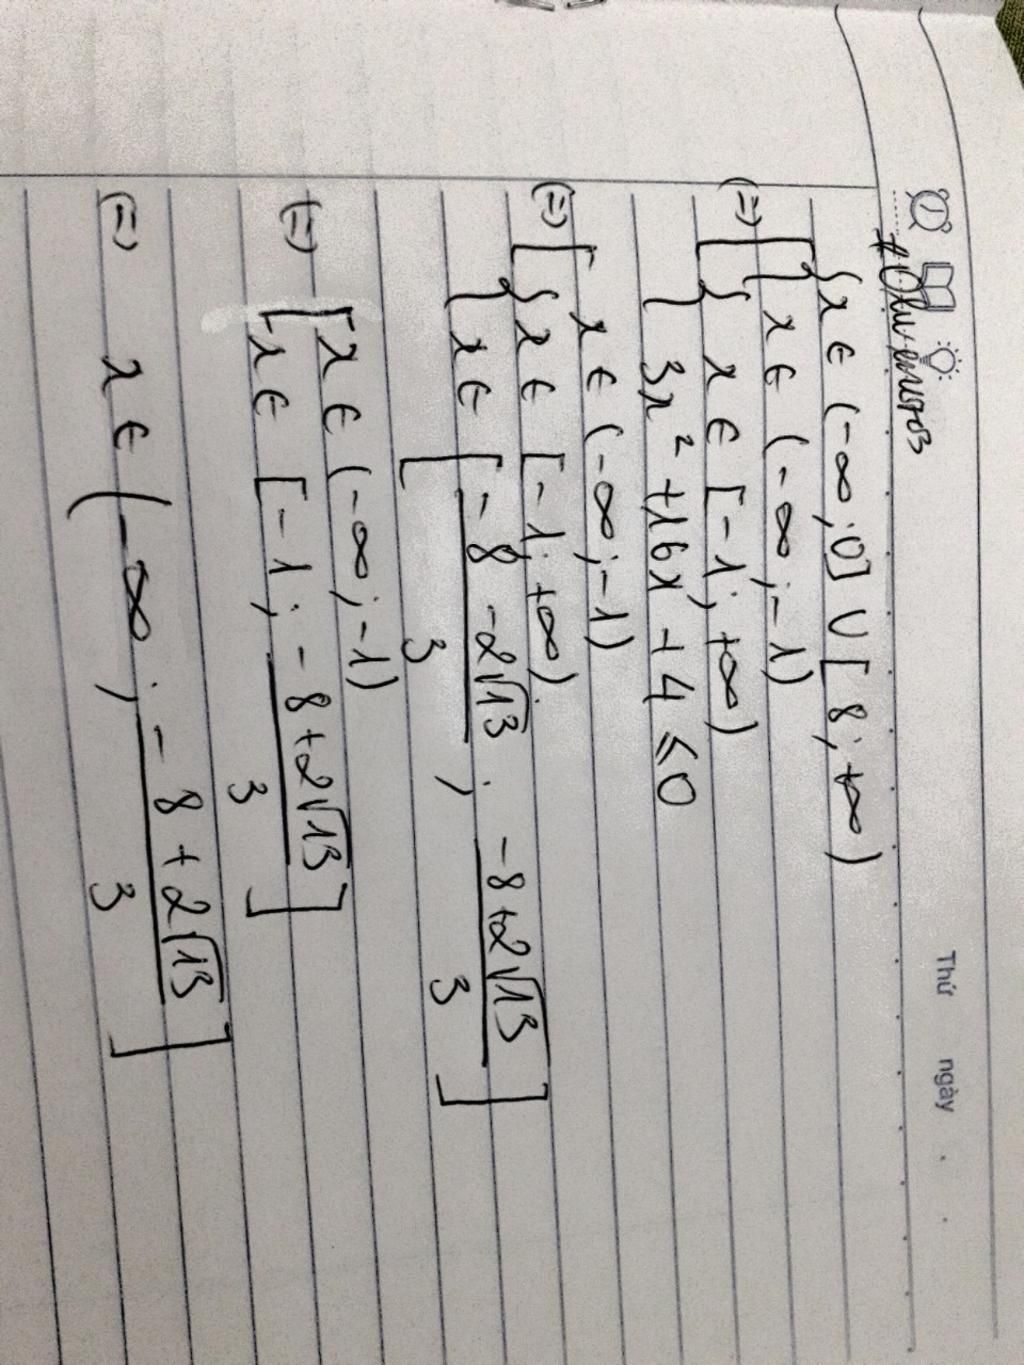 Thứ ngày
{ x ∈ (-∞; 0] ∪ [8; +∞)
x ∈ (-∞; -1)
(=) [ { x ∈ [-1; +∞)
3x² + 16x + 4 ≤ 0
x ∈ (-∞; -1)
(=) [ { x ∈ [-1; +∞)
{ x ∈ [ (-8 - 2√13)/3 ; (-8 + 2√13)/3 ]
[ x ∈ (-∞; -1)
(=) x ∈ [-1; (-8 + 2√13)/3 ]
(=) x ∈ (-∞; (-8 + 2√13)/3 ]